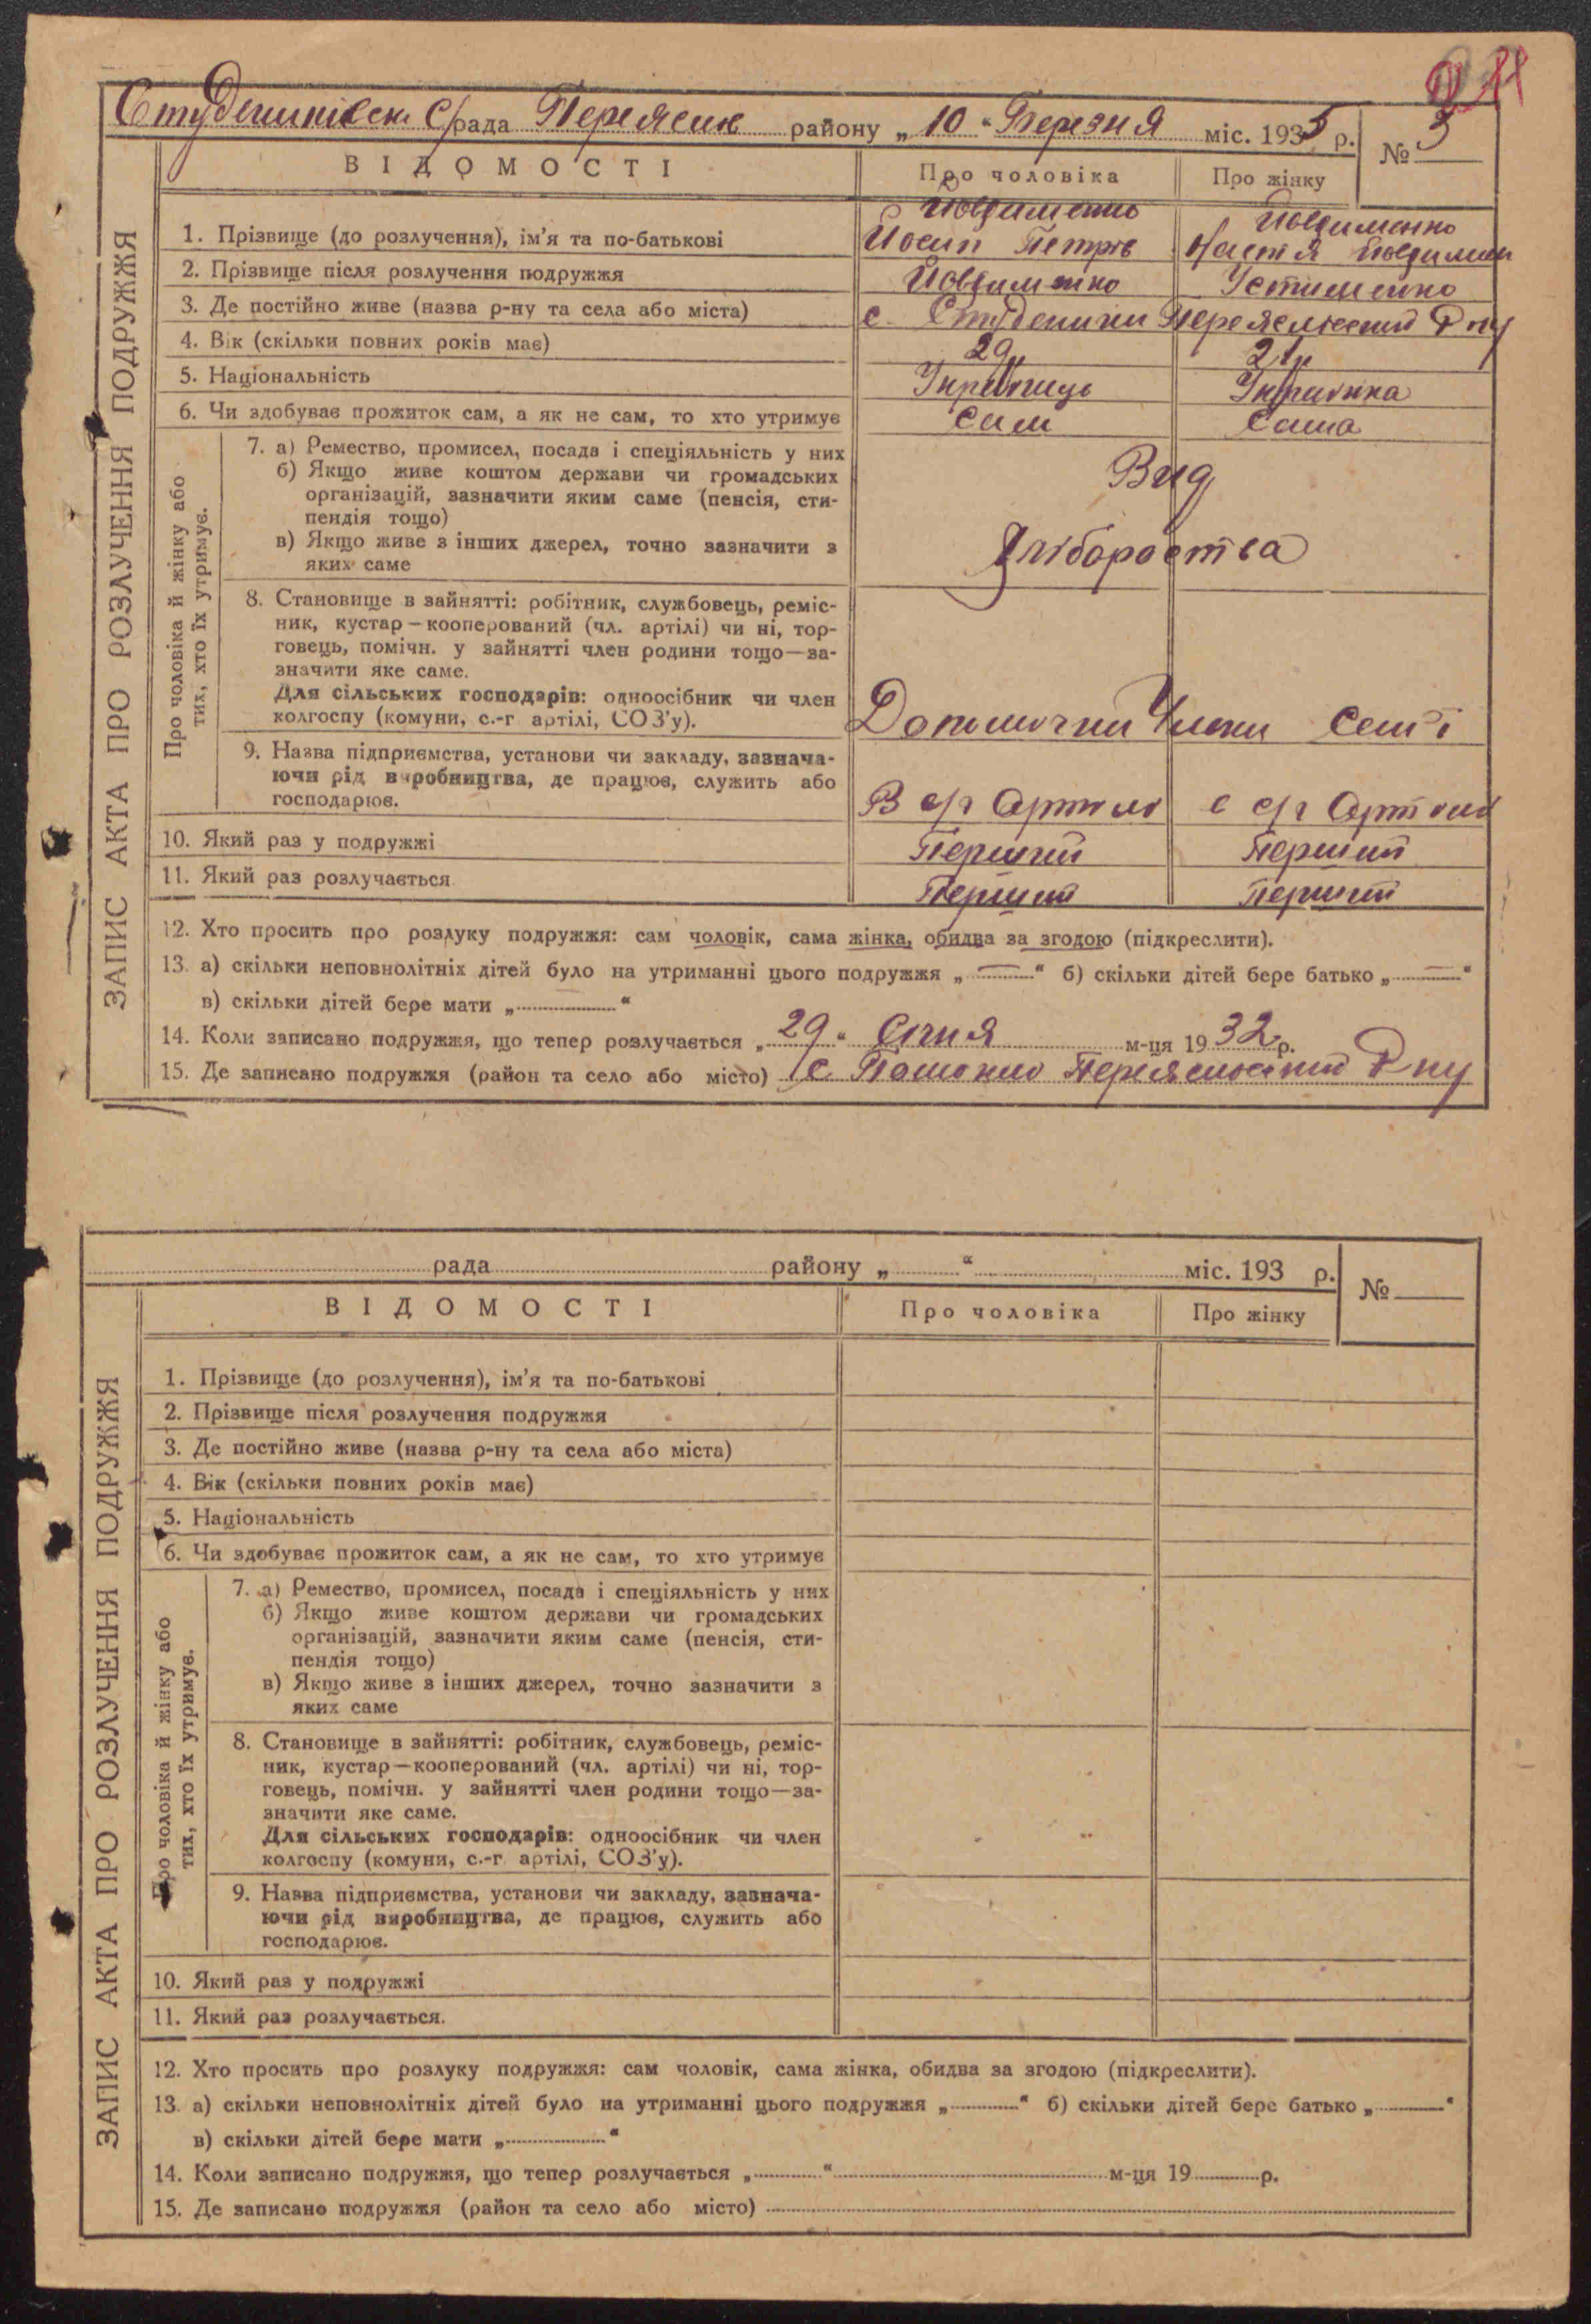 Студениківськ с/рада Переяслк району „ 10 “ Березня міс. 1935 р.
№ 3
ВІДОМОСТІ Про чоловіка Про жінку
1. Прізвище (до розлучення), ім'я та по-батькові Йосип Петрів Настя
2. Прізвище після розлучення подружжя Устименко
3. Де постійно живе (назва р-ну та села або міста) с. Студеники Переяславський Р-ну
4. Вік (скільки повних років має) 29р 21р
5. Національність Українець Українка
6. Чи здобуває прожиток сам, а як не сам, то хто утримує Сам Сама
Про чоловіка й жінку або тих, хто їх утримує.
7. а) Ремество, промисел, посада і спеціяльність у них
б) Якщо живе коштом держави чи громадських
організацій, зазначити яким саме (пенсія, сти-
пендія тощо)
в) Якщо живе з інших джерел, точно зазначити з
яких саме
Від
Хліборобства
8. Становище в зайнятті: робітник, службовець, реміс-
ник, кустар—кооперований (чл. артілі) чи ні, тор-
говець, помічн. у зайнятті член родини тощо—за-
значити яке саме.
Для сільських господарів: одноосібник чи член
колгоспу (комуни, с.-г артілі, СОЗ'у).
Члени Семї
9. Назва підприємства, установи чи закладу, зазнача-
ючи рід виробництва, де працює, служить або
господарює.
В с/г Артилі с/г Артилі
10. Який раз у подружжі Перший Перший
11. Який раз розлучається Перший Перший
12. Хто просить про розлуку подружжя: сам чоловік, сама жінка, обидва за згодою (підкреслити).
13. а) скільки неповнолітніх дітей було на утриманні цього подружжя „ — “ б) скільки дітей бере батько „ — “
в) скільки дітей бере мати „ “
14. Коли записано подружжя, що тепер розлучається „ 29 “ Січня м-ця 1932 р.
15. Де записано подружжя (район та село або місто) с. Переяславський Р-ну
ЗАПИС АКТА ПРО РОЗЛУЧЕННЯ ПОДРУЖЖЯ
рада району „ “ міс. 193 р.
№
ВІДОМОСТІ Про чоловіка Про жінку
1. Прізвище (до розлучення), ім'я та по-батькові
2. Прізвище після розлучення подружжя
3. Де постійно живе (назва р-ну та села або міста)
4. Вік (скільки повних років має)
5. Національність
6. Чи здобуває прожиток сам, а як не сам, то хто утримує
Про чоловіка й жінку або тих, хто їх утримує.
7. а) Ремество, промисел, посада і спеціяльність у них
б) Якщо живе коштом держави чи громадських
організацій, зазначити яким саме (пенсія, сти-
пендія тощо)
в) Якщо живе з інших джерел, точно зазначити з
яких саме
8. Становище в зайнятті: робітник, службовець, реміс-
ник, кустар—кооперований (чл. артілі) чи ні, тор-
говець, помічн. у зайнятті член родини тощо—за-
значити яке саме.
Для сільських господарів: одноосібник чи член
колгоспу (комуни, с.-г артілі, СОЗ'у).
9. Назва підприємства, установи чи закладу, зазнача-
ючи рід виробництва, де працює, служить або
господарює.
10. Який раз у подружжі
11. Який раз розлучається.
12. Хто просить про розлуку подружжя: сам чоловік, сама жінка, обидва за згодою (підкреслити).
13. а) скільки неповнолітніх дітей було на утриманні цього подружжя „ “ б) скільки дітей бере батько „ “
в) скільки дітей бере мати „ “
14. Коли записано подружжя, що тепер розлучається „ “ м-ця 19 р.
15. Де записано подружжя (район та село або місто)
ЗАПИС АКТА ПРО РОЗЛУЧЕННЯ ПОДРУЖЖЯ